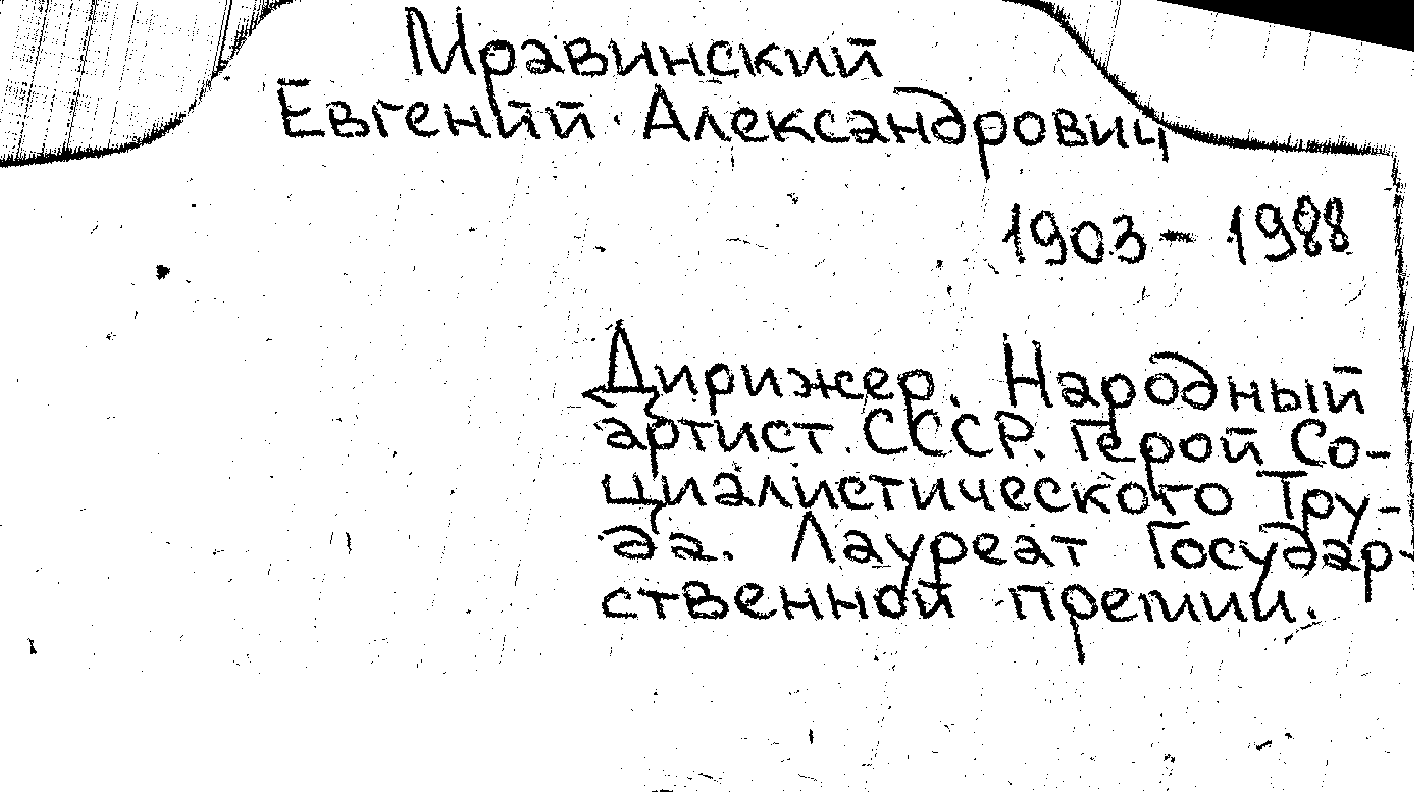 Мравинский
Евгений Александрович
1903 - 1988
Дирижер. Народный
артист СССР. Герой Со-
циалистического Тру-
да. Лауреат Государ-
ственной премии.